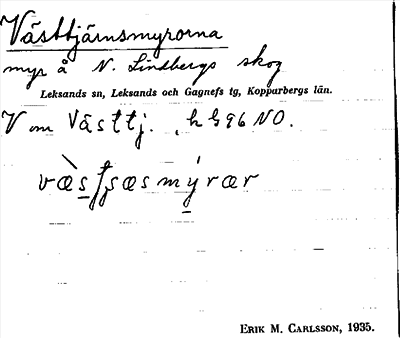 Västtjärnsmyrorna
myr å N. Lindbergs skog
Leksands sn, Leksands och Gagnefs tg, Kopparbergs län.
V om Västtj., k G96 NO.
væstʃæsmýrær
ERIK M. CARLSSON, 1935.